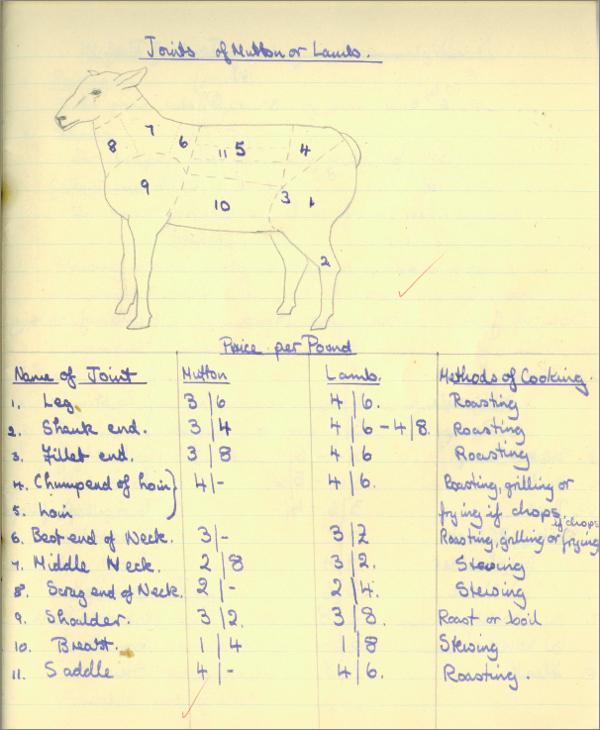 Joints of Mutton or Lamb.
7
8
6
11 5
4
9
10
3
1
2
Price per Pound
Name of Joint Mutton Lamb. Methods of Cooking.
1. Leg 3|6 4|6. Roasting
2. Shank end. 3|4 4|6-4|8. Roasting
3. Fillet end. 3|8 4|6 Roasting
4. Chump end of loin} 4|- 4|6. Roasting, grilling or
5. Loin frying if chops
6. Best end of Neck. 3|- 3|2 Roasting, grilling or frying if chops
7. Middle Neck. 2|8 3|2. Stewing
8. Scrag end of Neck. 2|- 2|4. Stewing
9. Shoulder. 3|2. 3|8. Roast or boil
10. Breast. 1|4 1|8 Stewing
11. Saddle 4|- 4|6. Roasting.